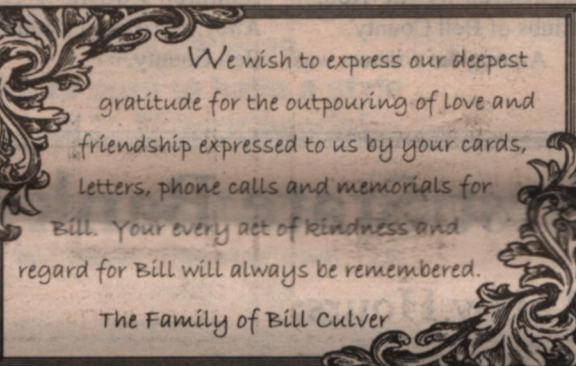 We wish to express our deepest
gratitude for the outpouring of love and
friendship expressed to us by your cards,
letters, phone calls and memorials for
Bill. Your every act of kindness and
regard for Bill will always be remembered.
The Family of Bill Culver